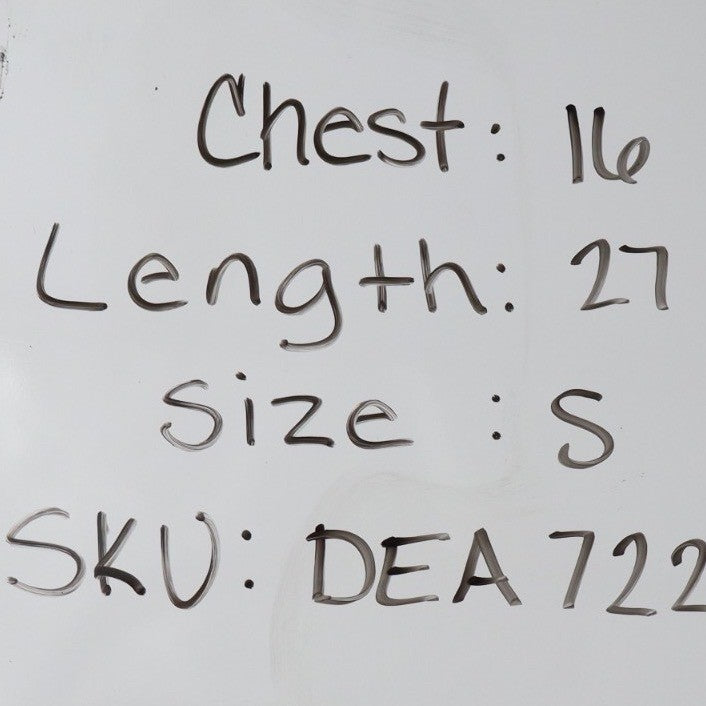 Chest: 16
Length: 27
Size : S
SKU: DEA 722